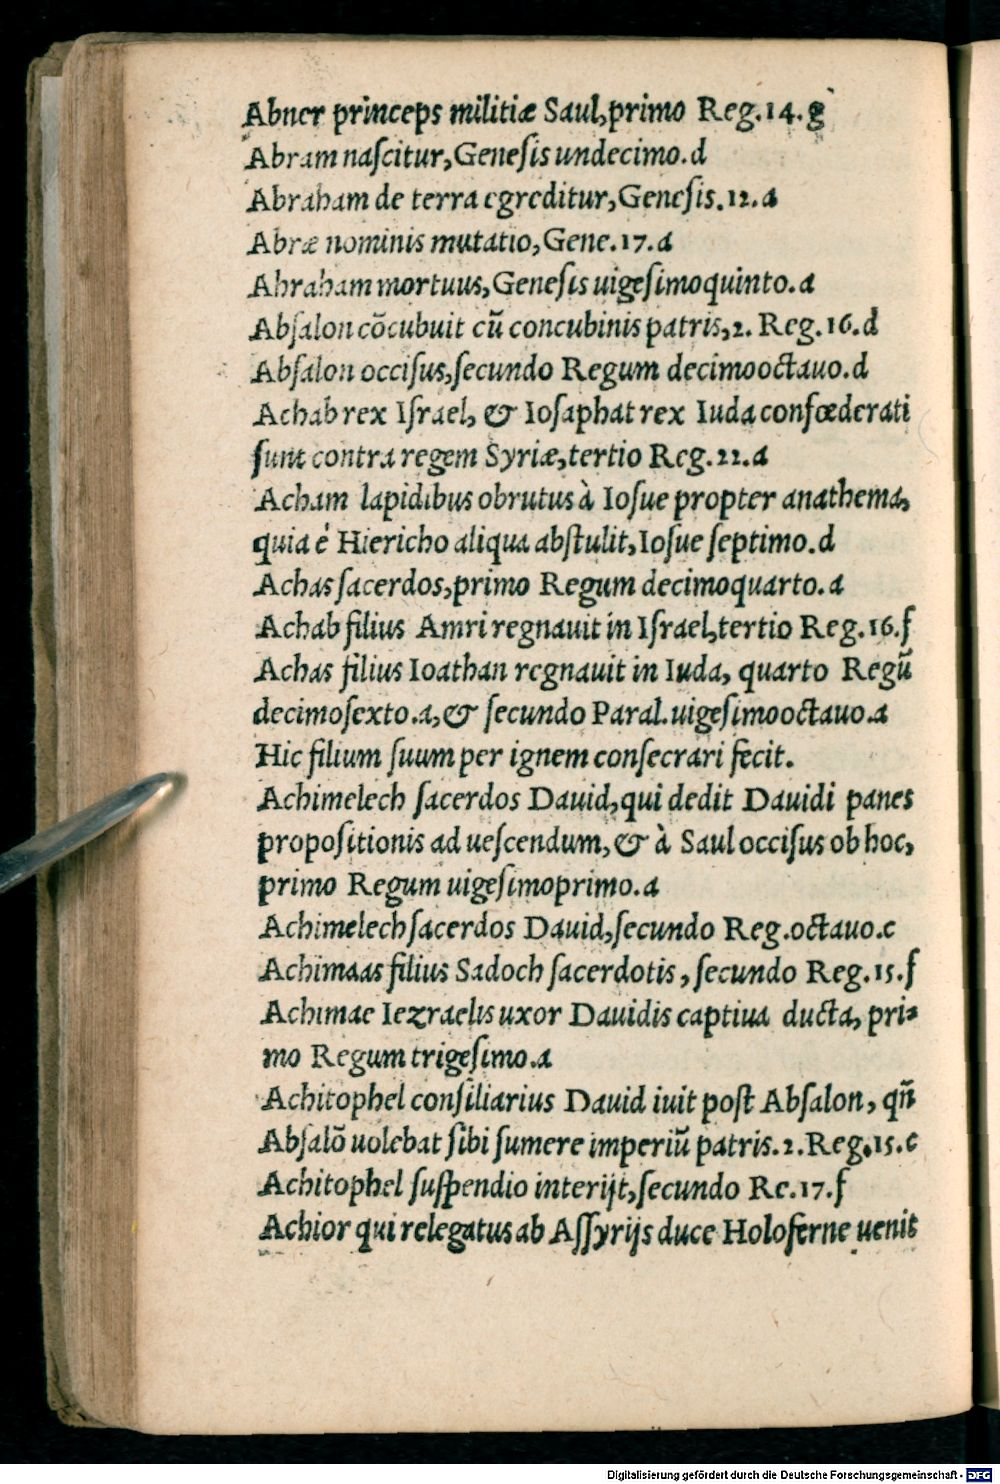 Abner princeps militiæ Saul, primo Reg. 14. g
Abram naſcitur, Geneſis undecimo. d
Abraham de terra egreditur, Geneſis. 12. a
Abræ nominis mutatio, Gene. 17. a
Abraham mortuus, Geneſis uigeſimoquinto. a
Abſalon cōcubuit cū concubinis patris, 2. Reg. 16. d
Abſalon occiſus, ſecundo Regum decimooctauo. d
Achab rex Iſrael, & Ioſaphat rex Iuda confœderati
ſunt contra regem Syriæ, tertio Reg. 22. a
Acham lapidibus obrutus à Ioſue propter anathema,
quia è Hiericho aliqua abſtulit, Ioſue ſeptimo. d
Achas ſacerdos, primo Regum decimoquarto. a
Achab filius Amri regnauit in Iſrael, tertio Reg. 16. f
Achas filius Ioathan regnauit in Iuda, quarto Regū
decimoſexto. a, & ſecundo Paral. uigeſimooctauo. a
Hic filium ſuum per ignem conſecrari fecit.
Achimelech ſacerdos Dauid, qui dedit Dauidi panes
propoſitionis ad ueſcendum, & à Saul occiſus ob hoc,
primo Regum uigeſimoprimo. a
Achimelech ſacerdos Dauid, ſecundo Reg. octauo. c
Achimaas filius Sadoch ſacerdotis, ſecundo Reg. 15. f
Achimae Iezraelis uxor Dauidis captiua ducta, pri-
mo Regum trigeſimo. a
Achitophel conſiliarius Dauid iuit poſt Abſalon, qn̄
Abſalō uolebat ſibi ſumere imperiū patris. 2. Reg. 15. c
Achitophel ſuſpendio interijt, ſecundo Re. 17. f
Achior qui relegatus ab Aſſyrijs duce Holoferne uenit
Digitalisierung gefördert durch die Deutsche Forschungsgemeinschaft - DFG